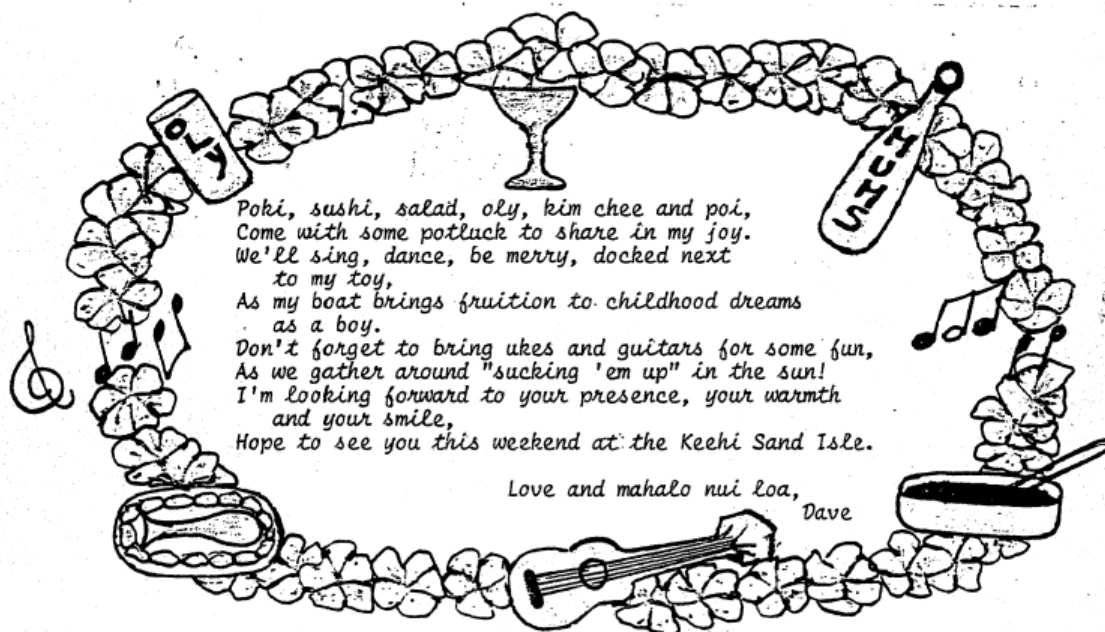 OLY
MUMS
Poki, sushi, salad, oly, kim chee and poi,
Come with some potluck to share in my joy.
We'll sing, dance, be merry, docked next
to my toy,
As my boat brings fruition to childhood dreams
as a boy.
Don't forget to bring ukes and guitars for some fun,
As we gather around "sucking 'em up" in the sun!
I'm looking forward to your presence, your warmth
and your smile,
Hope to see you this weekend at the Keehi Sand Isle.
Love and mahalo nui loa,
Dave